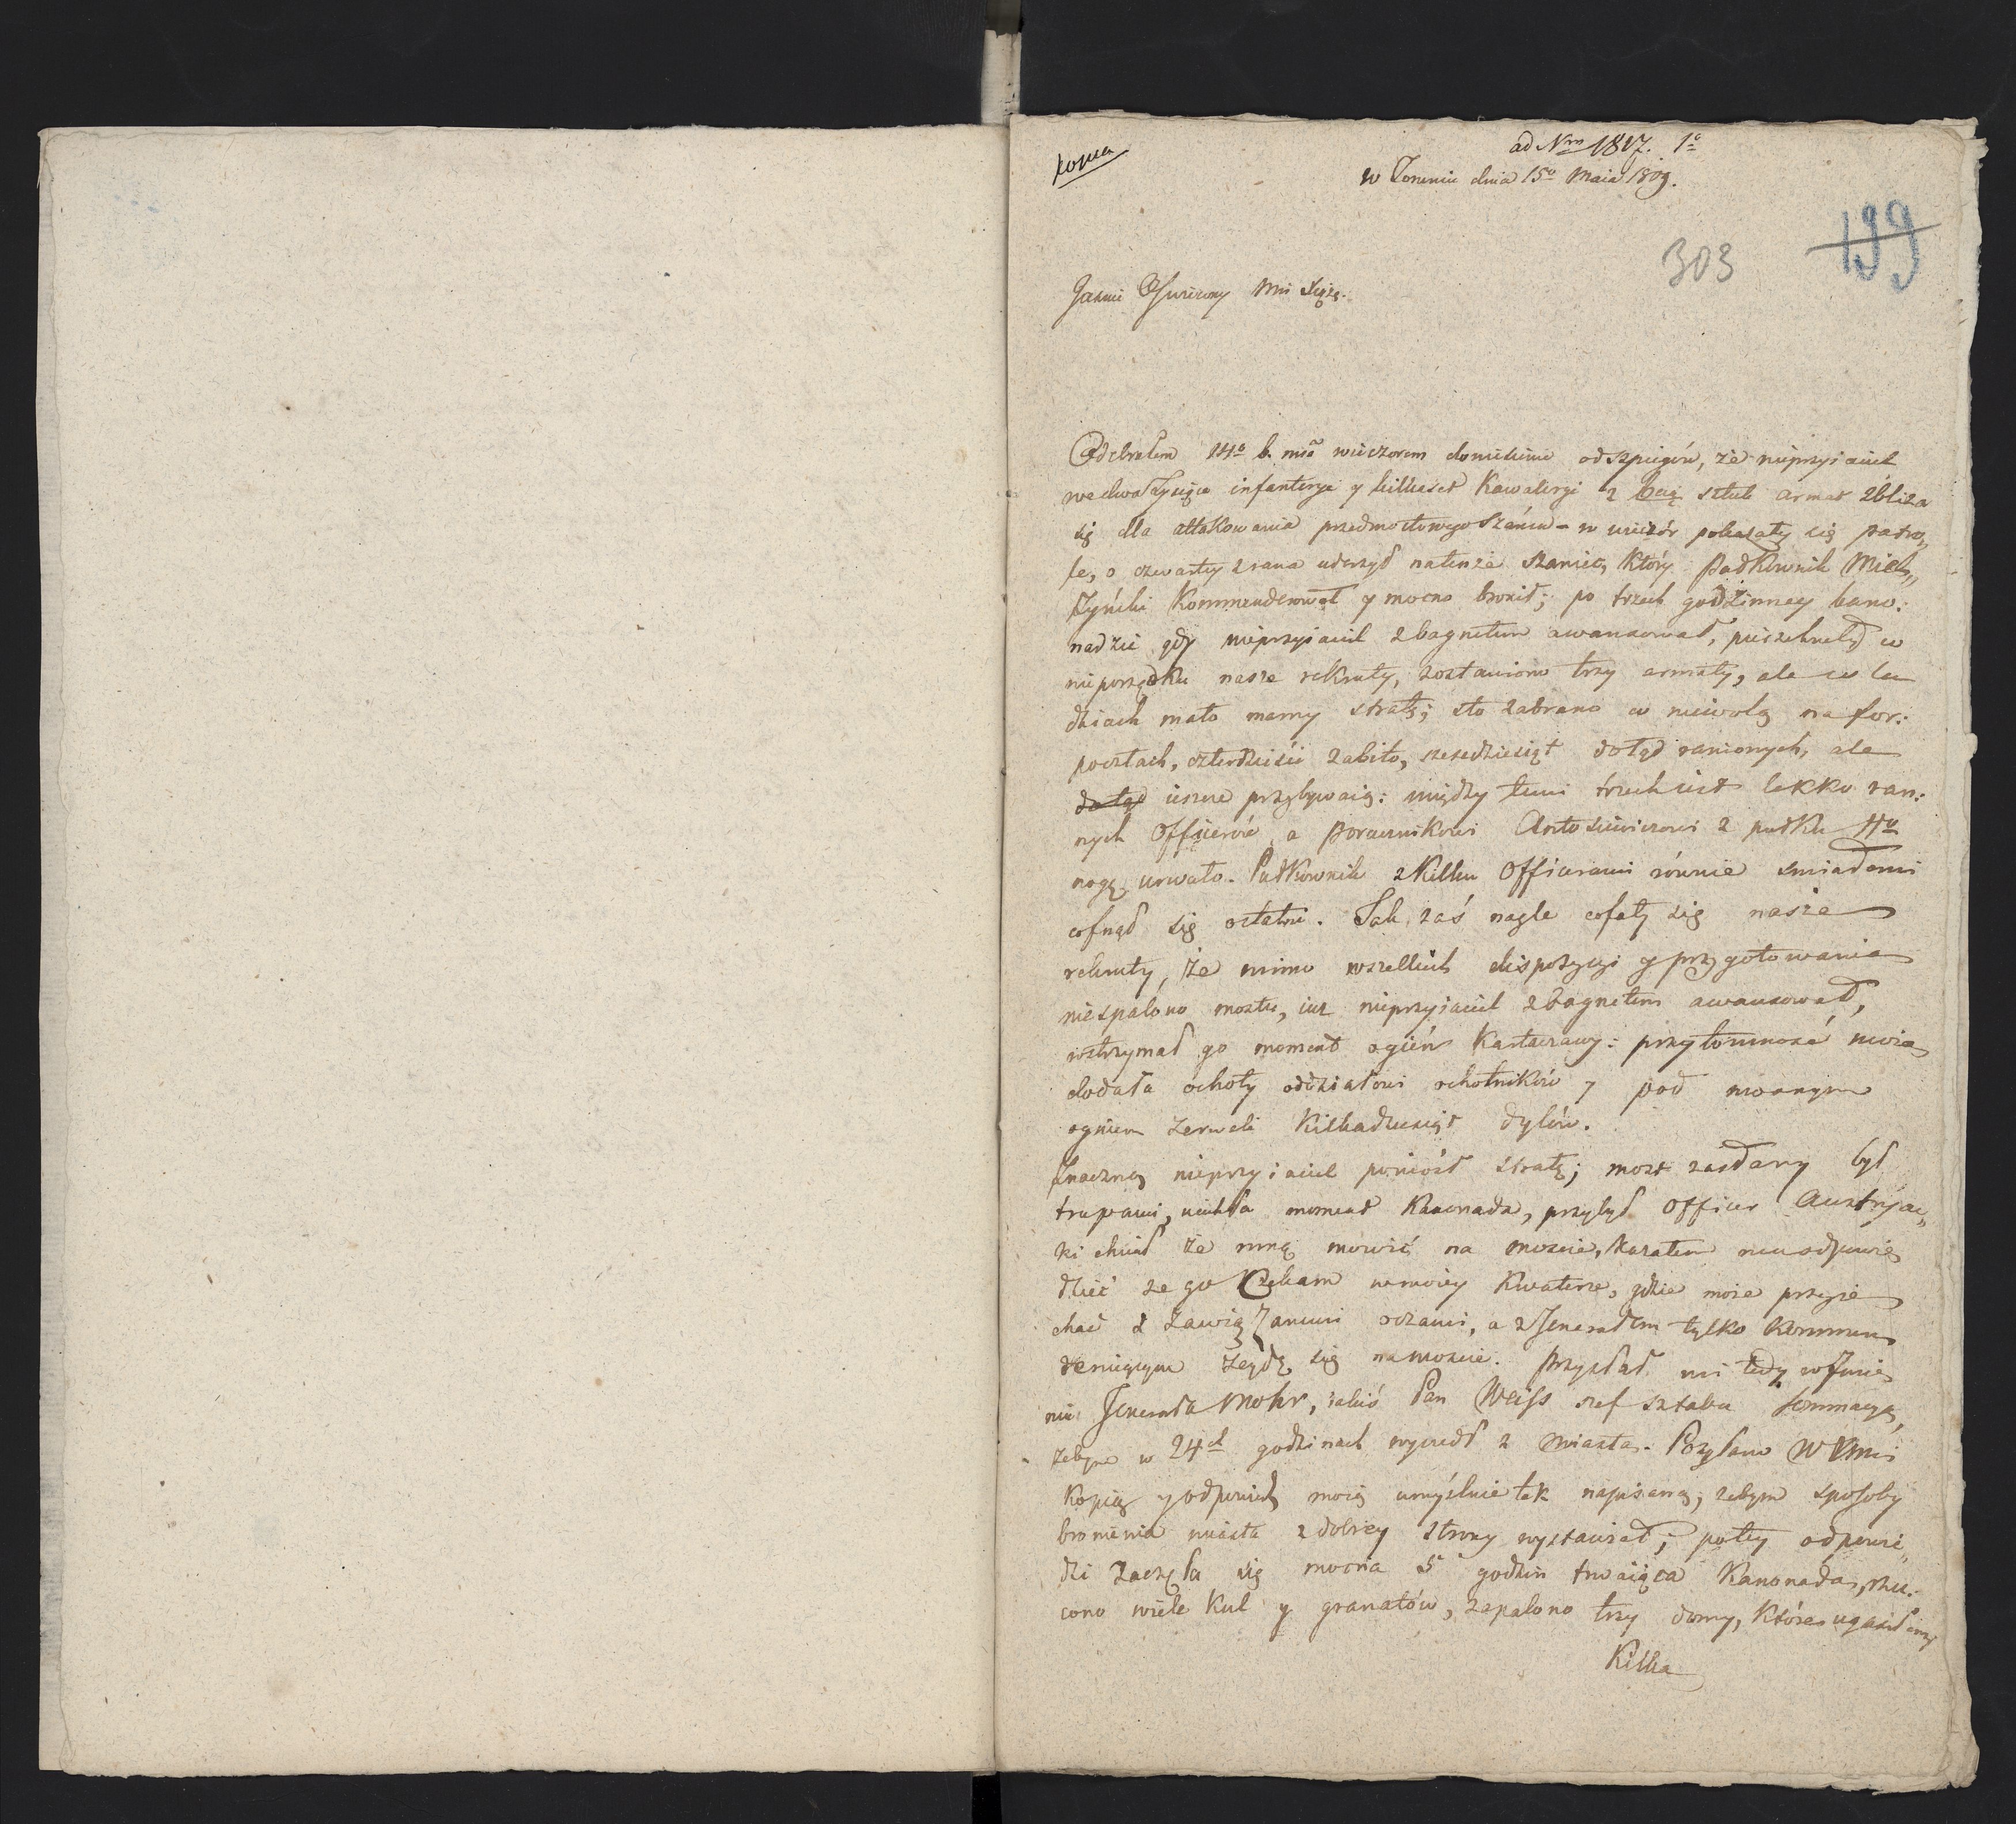 kopia
ad Nrm 1817. 1o
w Toruniu dnia 15o Maia 1809.
303
199
Jaśnie Oświecony Mci Xiąże.
Odebrałem 14o b. mca wieczorem doniesienie od szpiegów, że nieprzyiaciel
we dwa tysiące infanteryi y kilkaset Kawaleryi z 6cią sztuk armat zbliża
się dla attakowania przedmostowego Szańcu – w wieczór pokazały się patro„
le, o czwartey z rana uderzył na tenże szaniec, który Pułkownik Miel„
żyński Kommenderował y mocno bronił; po trzech godzinney kano:
nadzie gdy nieprzyiaciel z bagnetem awansował, pierzchnęły w
nieporządku nasze rekruty, zostawiono trzy armaty, ale w lu
dziach mało mamy straty; sto zabrano w niewolą na for:
pocztach, czterdzieści zabito, sześćdziesiąt dotąd ranionych, ale
dotąd ieszcze przybywaią: między temi trzech iest lekko ran:
nych Officerów, a Porucznikowi Antosiewiczowi z pułku 11o
nogę urwało. Pułkownik z Kilku Officerami równie śmiałemi
cofnął się ostatni. Tak zaś nagle cofały się nasze
rekruty, że mimo wszelkich dispozycyi y przygotowania
niespalono mostu, iuż nieprzyiaciel z bagnetem awansował,
wstrzymał go moment ogień Kartaczowy: przytomność moia
dodała ochoty oddziałowi ochotników y pod mocnym
ogniem zerwali Kilkadziesiąt dylów.
Znaczną nieprzyiaciel poniósł stratę; most zasłany był
trupami, ucichła moment Kanonada, przybył Officer Austryac„
ki chciał ze mną mówić na moście, kazałem mu odpowie
dzieć że go Czekam w moiey Kwaterze, gdzie może przyie
chać z zawiązanemi oczami, a z Jenerałem tylko Kommen
deruiącym zeydę się na moście. Przysłał mi tedy w Imie
niu Jenerała Mohr, iakiś Pan Weiss szef sztabu Sommacyą,
żebym w 24ch godzinach wyszedł z Miasta. Posyłam WXMci
Kopią y odpowiedź moią umyślnie tak napisaną, żebym sposoby
bronienia miasta z dobrey strony wystawiał; po tey odpowie„
dzi zaczęła się mocna 5 godzin trwaiąca Kanonada, rzu:
cono wiele Kul y granatów, zapalono trzy domy, które ugasiliśmy
Kilka